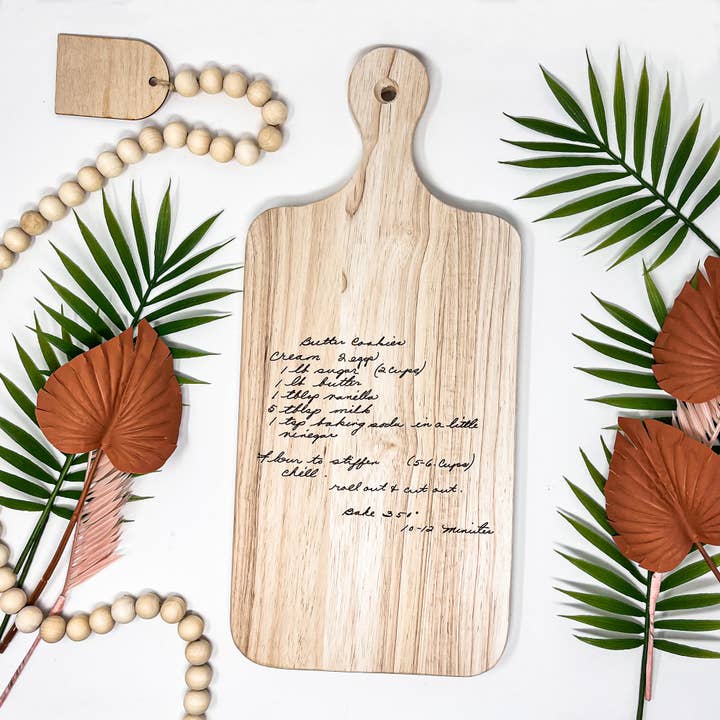 Butter Cookies
Cream 2 eggs
1 lb sugar (2 cups)
1 lb butter
1 tblsp vanilla
5 tblsp milk
1 tsp baking soda in a little
vinegar
Flour to stiffen (5-6 cups)
chill.
roll out & cut out.
Bake 350°
10-12 minutes